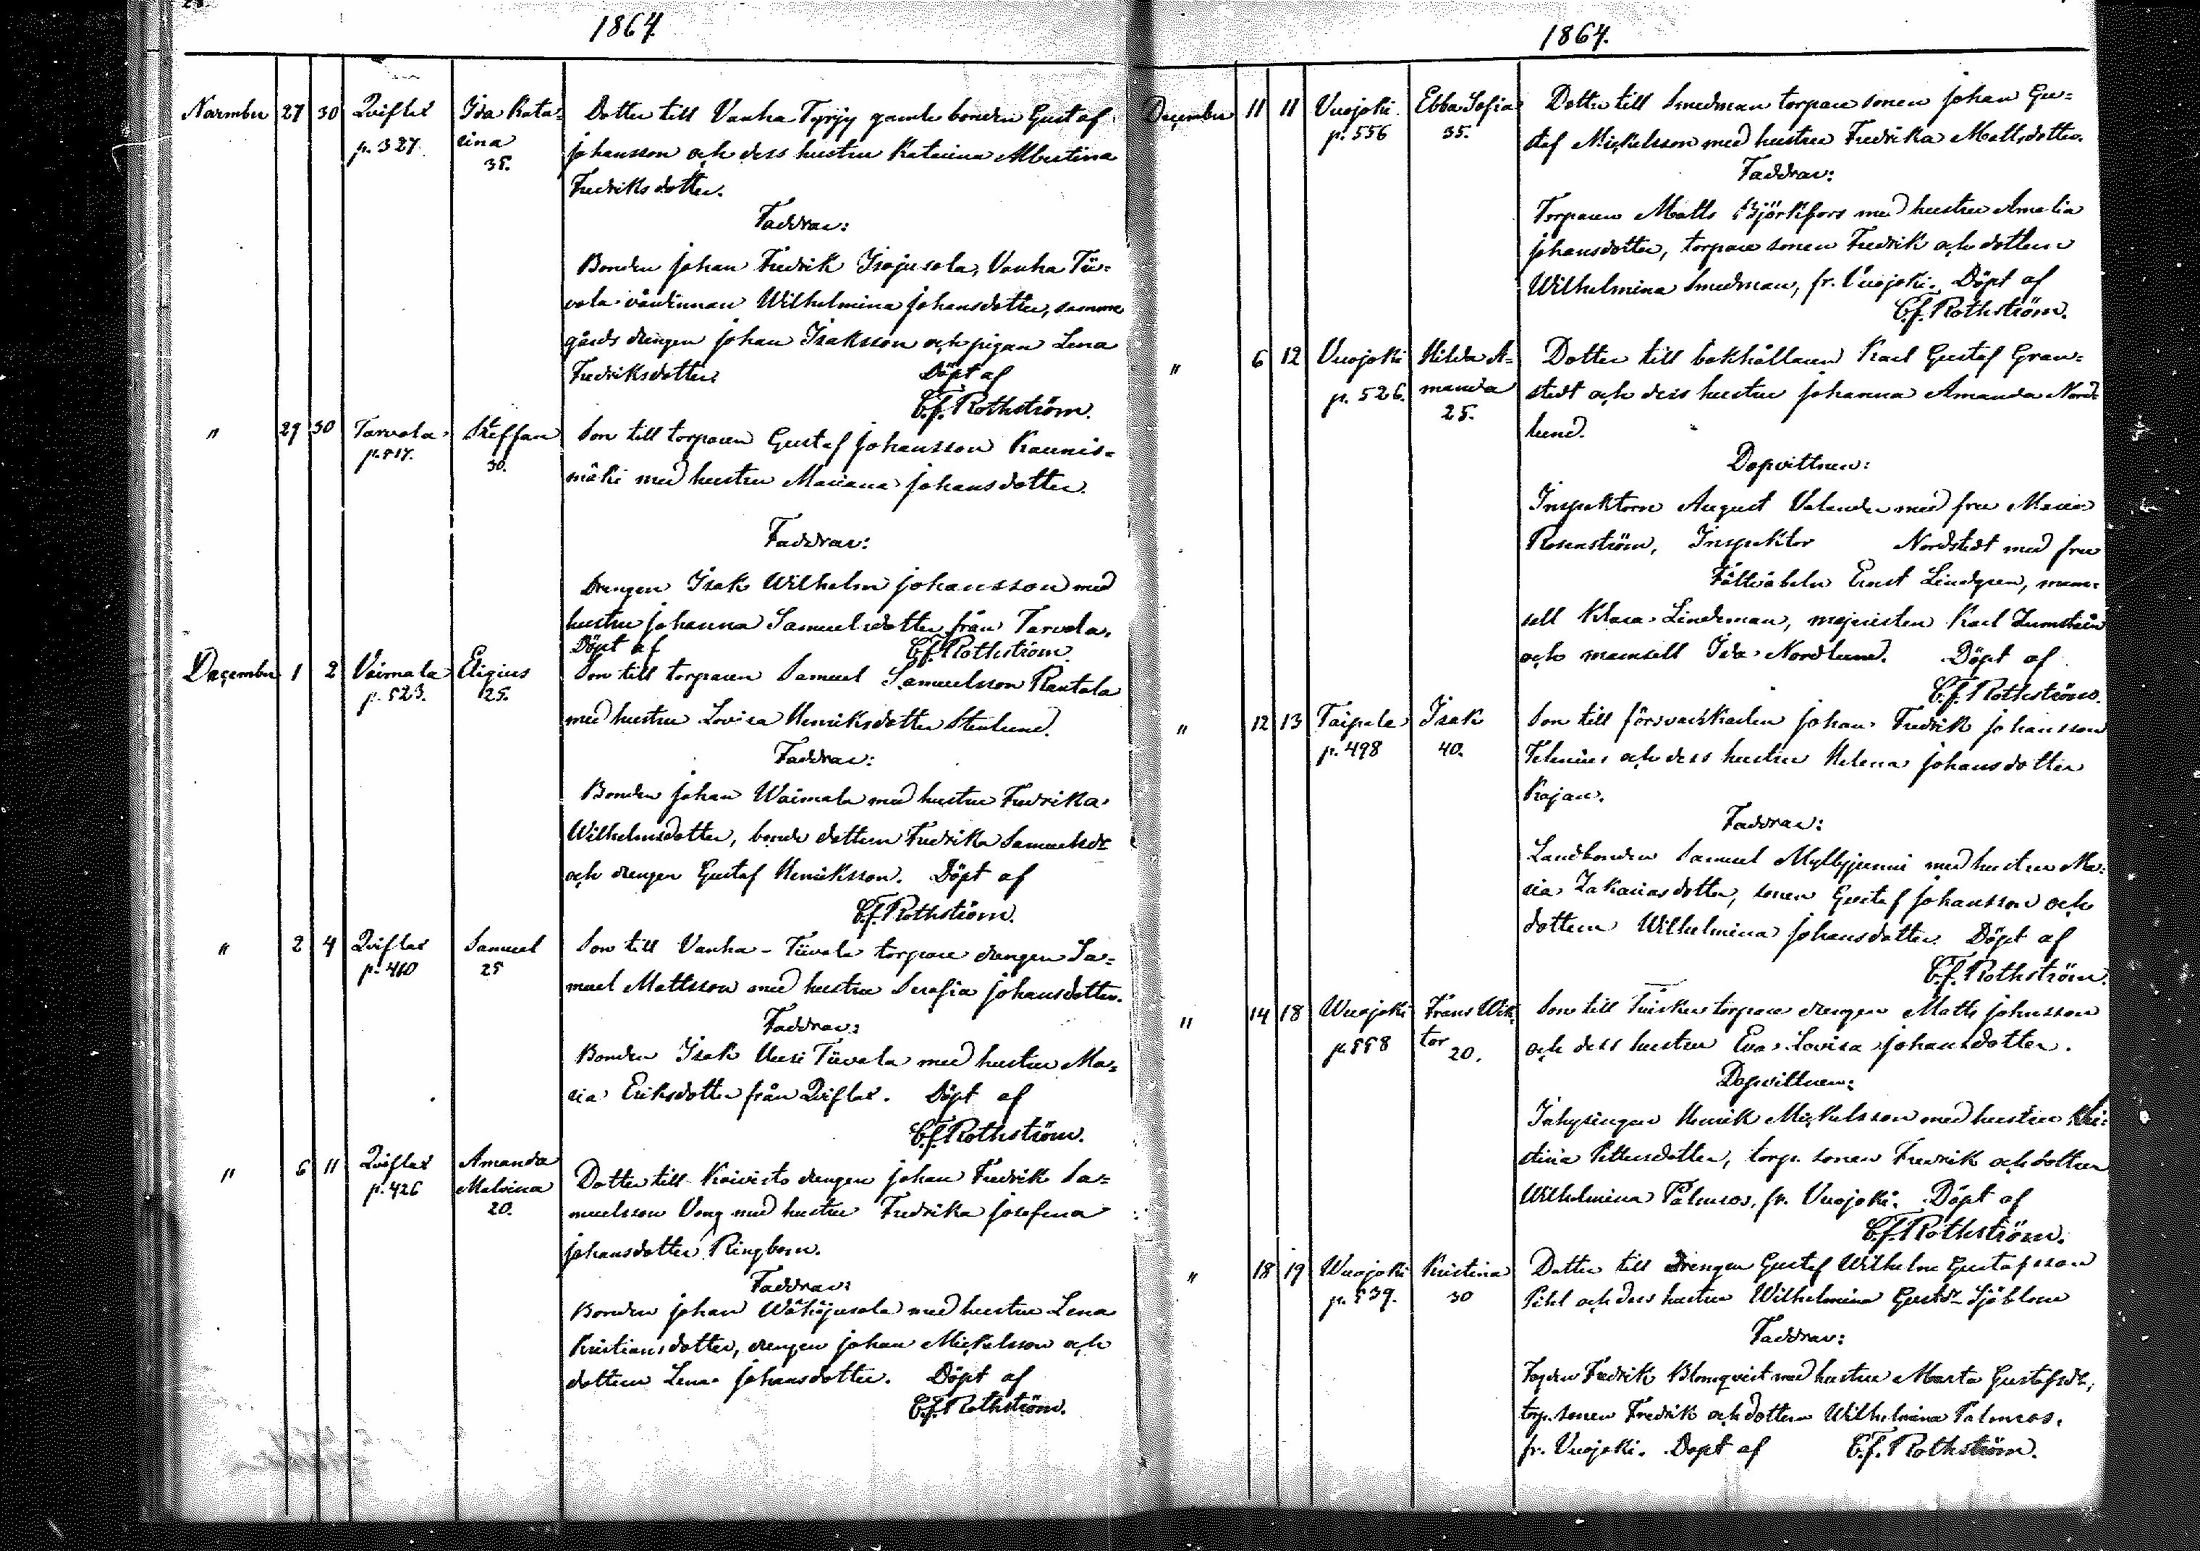 1864.
November 27 30 Qviflax Ida Kata= Dotter till Vanha Tyrjy gamle bonden Gustaf
p. 327. rina Johansson och dess hustru Katarina Albertina
35. Fredriksdotter.
Faddrar:
Bonden Johan Fredrik Isojusola, Vanha Tii=
vola värdinnan Wilhelmina Johansdotter, samme
gårds drengen Johan Isaksson och pigan Lena
Fredriksdotter. Döpt af
C.f. Rothström.
" 29 30 Tarvola Steffan Son till torparen Gustaf Johansson Kaunis=
p. 517. 30. mäki med hustru Mariana Johansdotter.
Faddrar:
Drengen Isak Wilhelm Johansson med
hustru Johanna Samuelsdotter från Tarvola.
Döpt af C.f. Rothström.
December 1 2 Väimala Eligius Son till torparen Samuel Samuelsson Rantala
p. 523. 25. med hustru Lovisa Henriksdotter Stenlund.
Faddrar:
Bonden Johan Waimala med hustru Fredrika
Wilhelmsdotter, bonde dottern Fredrika Samuelsdr
och drengen Gustaf Henriksson. Döpt af
C.f. Rothström.
" 2 4 Qviflax Samuel Son till Vanha-Tiivola torpare drengen Sa=
p. 460 25 muel Mattsson med hustru Serafia Johansdotter.
Faddrar:
Bonden Isak Uusi Tiivola med hustru Ma=
ria Eriksdotter från Qviflax. Döpt af
C.f. Rothström.
" 6 11 Qviflax Amanda Dotter till Koivisto drengen Johan Fredrik Sa=
p. 426 Malvina muelsson Vong med hustru Fredrika Josefina
20. Johansdotter Ringbom.
Faddrar:
Bonden Johan Wähäjusola med hustru Lena
Kristiansdotter, drengen Johan Mickelsson och
dottern Lena Johansdotter. Döpt af
C.f. Rothström.
1864.
December 11 11 Vuojoki Ebba Sofia Dotter till Smedman torpare sonen Johan Gu=
p. 556 35. staf Mickelsson med hustru Fredrika Mattsdotter.
Faddrar:
Torparen Matts Björkfors med hustru Amalia
Johansdotter, torpare sonen Fredrik och dottern
Wilhelmina Smedman, fr. Vuojoki. Döpt af
C.f. Rothström.
" 6 12 Vuojoki Hilda A= Dotter till bokhållaren Karl Gustaf Gran=
p. 526. manda stedt och dess hustru Johanna Amanda Nord
25. lund.
Dopvittnen:
Inspektorn August Velander med fru Maria
Rosenström, Inspektor Nordstedt med fru
Fältväbeln Ernst Lindgren, mam=
sell Klara Lindeman, mejeristen Karl Zumstein
och mamsell Ida Nordlund. Döpt af
C.f. Rothström.
" 12 13 Taipale Isak Son till försvarskarlen Johan Fredrik Johansson
p. 498 40. Telenius och dess hustru Helena Johansdotter
Kojan.
Faddrar:
Landbonden Samuel Myllyjunni med hustru Ma=
ria Zakariasdotter, sonen Gustaf Johansson och
dottern Wilhelmina Johansdotter. Döpt af
C.f. Rothström.
" 14 18 Wuojoki Frans Wik= Son till torpare drengen Matts Johansson
p. 558 tor och dess hustru Eva Lovisa Johansdotter.
20.
Dopvittnen:
Inhysingen Henrik Mickelsson med hustru Kri=
stina Pettersdotter, torp. sonen Fredrik och dottern
Wilhelmina Palmros, fr. Vuojoki. Döpt af
C.f. Rothström.
" 18 19 Wuojoki Kristina Dotter till Drengen Gustaf Wilhelm Gustafsson
p. 539. 30 Pihl och dess hustru Wilhelmina Gustsdr Sjöblom
Faddrar:
Fogden Fredrik Blomqvist med hustru Marta Gustafsdr,
torp. sonen Fredrik och dottern Wilhelmina Palmros,
fr. Vuojoki. Döpt af C.f. Rothström.